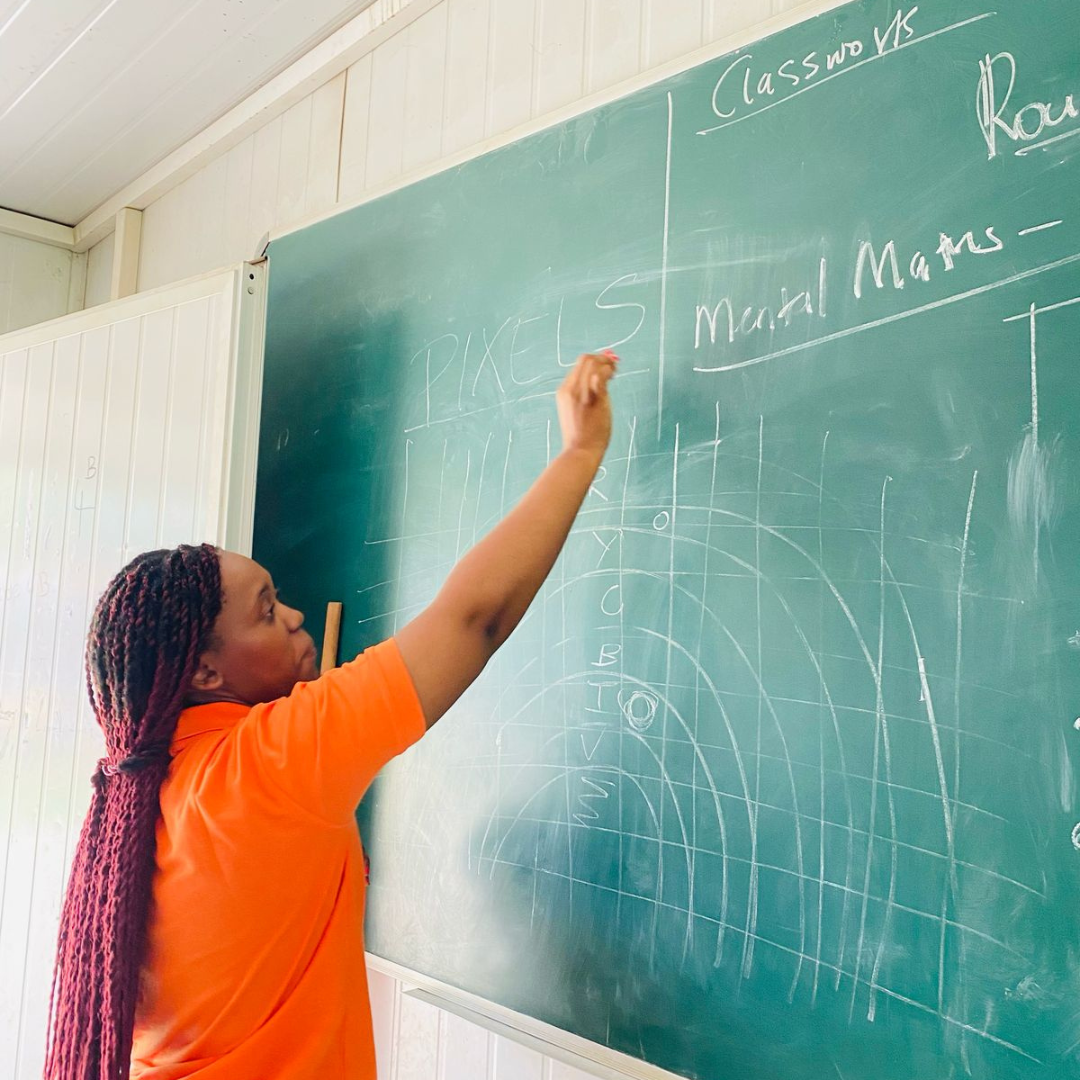 Classworks
Rou
Mental Maths -
PIXELS
R
Y
O
B
I
V